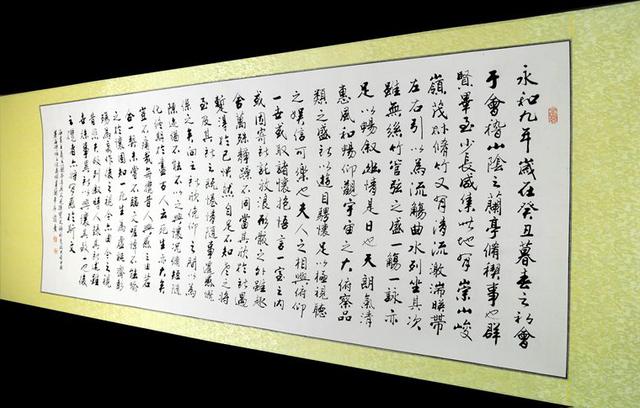 永和九年歲在癸丑暮春之初會
于會稽山陰之蘭亭脩禊事也群
賢畢至少長咸集此地有崇山峻
嶺茂林脩竹又有清流激湍暎帶
左右引以為流觴曲水列坐其次
雖無絲竹管弦之盛一觴一詠亦
足以暢敘幽情是日也天朗氣清
惠風和暢仰觀宇宙之大俯察品
類之盛所以遊目騁懷足以極視聽
之娛信可樂也夫人之相與俯仰
一世或取諸懷抱悟言一室之內
或因寄所託放浪形骸之外雖趣
舍萬殊靜躁不同當其欣於所遇
暫得於己怏然自足不知老之將
至及其所之既惓情隨事遷感慨
係之矣向之所欣俛仰之間以為
陳迹猶不能不以之興懷況脩短隨
化終期於盡古人云死生亦大矣
豈不痛哉每攬昔人興感之由若
合一契未嘗不臨文嗟悼不能喻
之於懷固知一死生為虛誕齊彭
殤為妄作後之視今亦由今之視
昔悲夫故列敘時人錄其所述雖
世殊事異所以興懷其致一也後
之攬者亦將有感於斯文